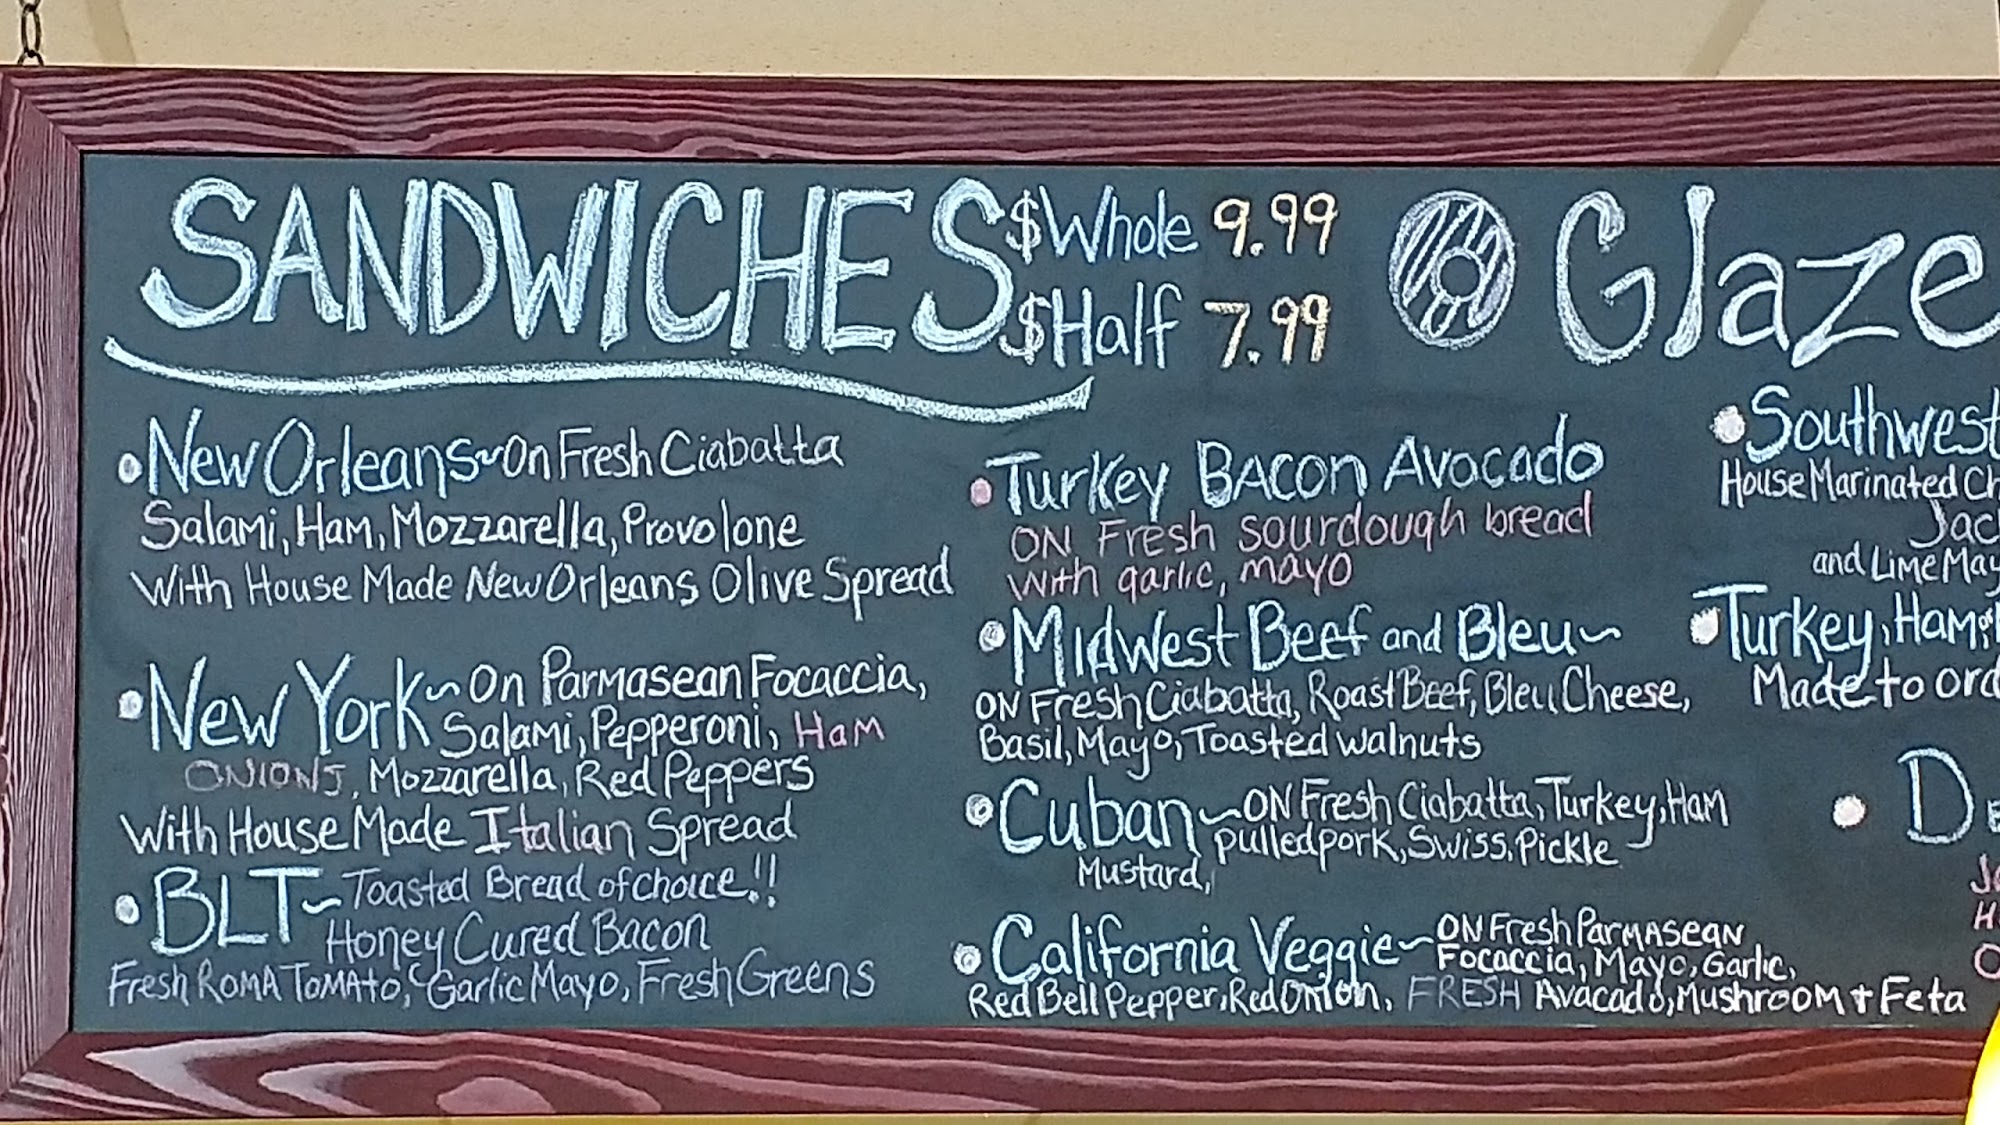 SANDWICHES
$Whole 9.99
$Half 7.99
Glaze
• New Orleans~On Fresh Ciabatta
Salami, Ham, Mozzarella, Provolone
With House Made New Orleans Olive Spread
• New York~On Parmasean Focaccia,
Salami, Pepperoni, Ham
ONIONS, Mozzarella, Red Peppers
With House Made Italian Spread
• BLT~Toasted Bread of choice!!
Honey Cured Bacon
Fresh ROMA TOMAto, Garlic Mayo, Fresh Greens
• Turkey BACON Avocado
ON Fresh sourdough bread
with garlic, mayo
• MIdwest Beef and Bleu~
ON Fresh Ciabatta, Roast Beef, Bleu Cheese,
Basil, Mayo, Toasted walnuts
• Cuban~ON Fresh Ciabatta, Turkey, Ham
pulledpork, Swiss, Pickle
Mustard,
• California Veggie~ON Fresh ParMASeaN
Focaccia, Mayo, Garlic,
Red Bell Pepper, Red Onion, FRESH Avacado, MushrooM + Feta
• Southwest
House Marinated Ch
Jac
and Lime May
• Turkey, Ham
Made to ord